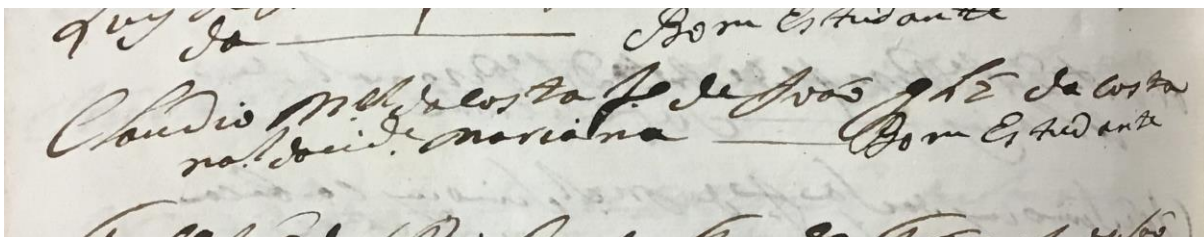 da ——— Bom Estudante
Claudio M.el da costa f.o de João glz da costa
na.l da cid.e mariana ——— Bom Estudante